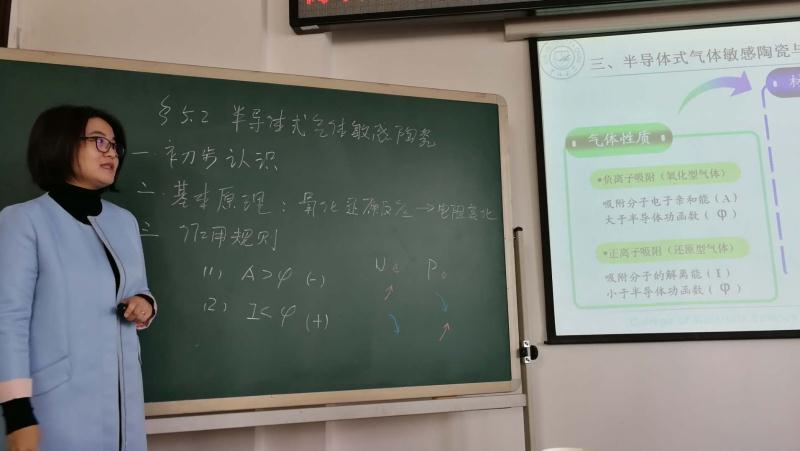 §5.2 半导体式气体敏感陶瓷
一 初步认识
二 基本原理：氧化还原反应→电阻变化
三 作用规则
(1) A>φ (-)
(2) I<φ (+)
N e P
三、半导体式气体敏感陶瓷与
气体性质
•负离子吸附（氧化型气体）
吸附分子电子亲和能（A）
大于半导体功函数（φ）
•正离子吸附（还原型气体）
吸附分子的解离能（I）
小于半导体功函数（φ）